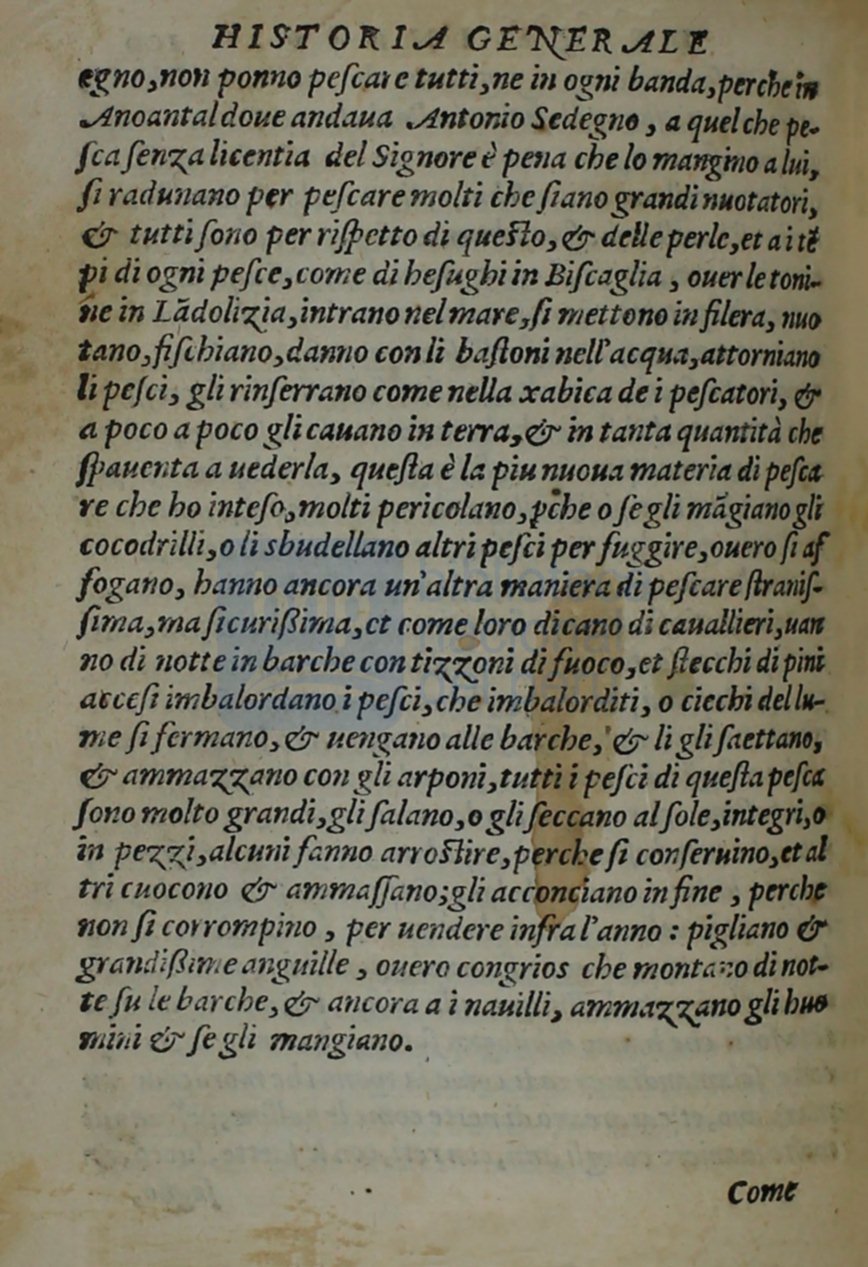 HISTORIA GENERALE
egno,non ponno peſcare tutti,ne in ogni banda,perche in
Anoantal doue andaua Antonio Sedegno , a quel che pe-
ſca ſenza licentia del Signore è pena che lo mangino a lui,
ſi radunano per peſcare molti che ſiano grandi nuotatori,
& tutti ſono per riſpetto di queſto,& delle perle,et a i tē
pi di ogni peſce,come di beſughi in Biſcaglia , ouer le toni-
ne in Lādolizia,intrano nel mare,ſi mettono in filera, nuo
tano,fiſchiano,danno con li baſtoni nell'acqua,attorniano
li peſci, gli rinſerrano come nella xabica de i peſcatori, &
a poco a poco gli cauano in terra,& in tanta quantità che
ſpauenta a uederla, queſta è la piu nuoua materia di peſca
re che ho inteſo,molti pericolano,pche o ſe gli māgiano gli
cocodrilli,o li sbudellano altri peſci per fuggire,ouero ſi af
fogano, hanno ancora un'altra maniera di peſcare ſtraniſ-
ſima,ma ſicurißima,et come loro dicano di cauallieri,uan
no di notte in barche con tizzoni di fuoco,et ſtecchi di pini
acceſi imbalordano i peſci,che imbalorditi, o ciechi del lu-
me ſi fermano,& uengano alle barche,& li gli ſaettano,
& ammazzano con gli arponi,tutti i peſci di queſta peſca
ſono molto grandi,gli ſalano,o gli ſeccano al ſole,integri,o
in pezzi,alcuni fanno arroſtire,perche ſi conſeruino,et al
tri cuocono & ammaſſano;gli acconciano in fine , perche
non ſi corrompino , per uendere infra l'anno : pigliano &
grandißime anguille , ouero congrios che montano di not-
te ſu le barche,& ancora a i nauilli, ammazzano gli huo
mini & ſe gli mangiano.
Come